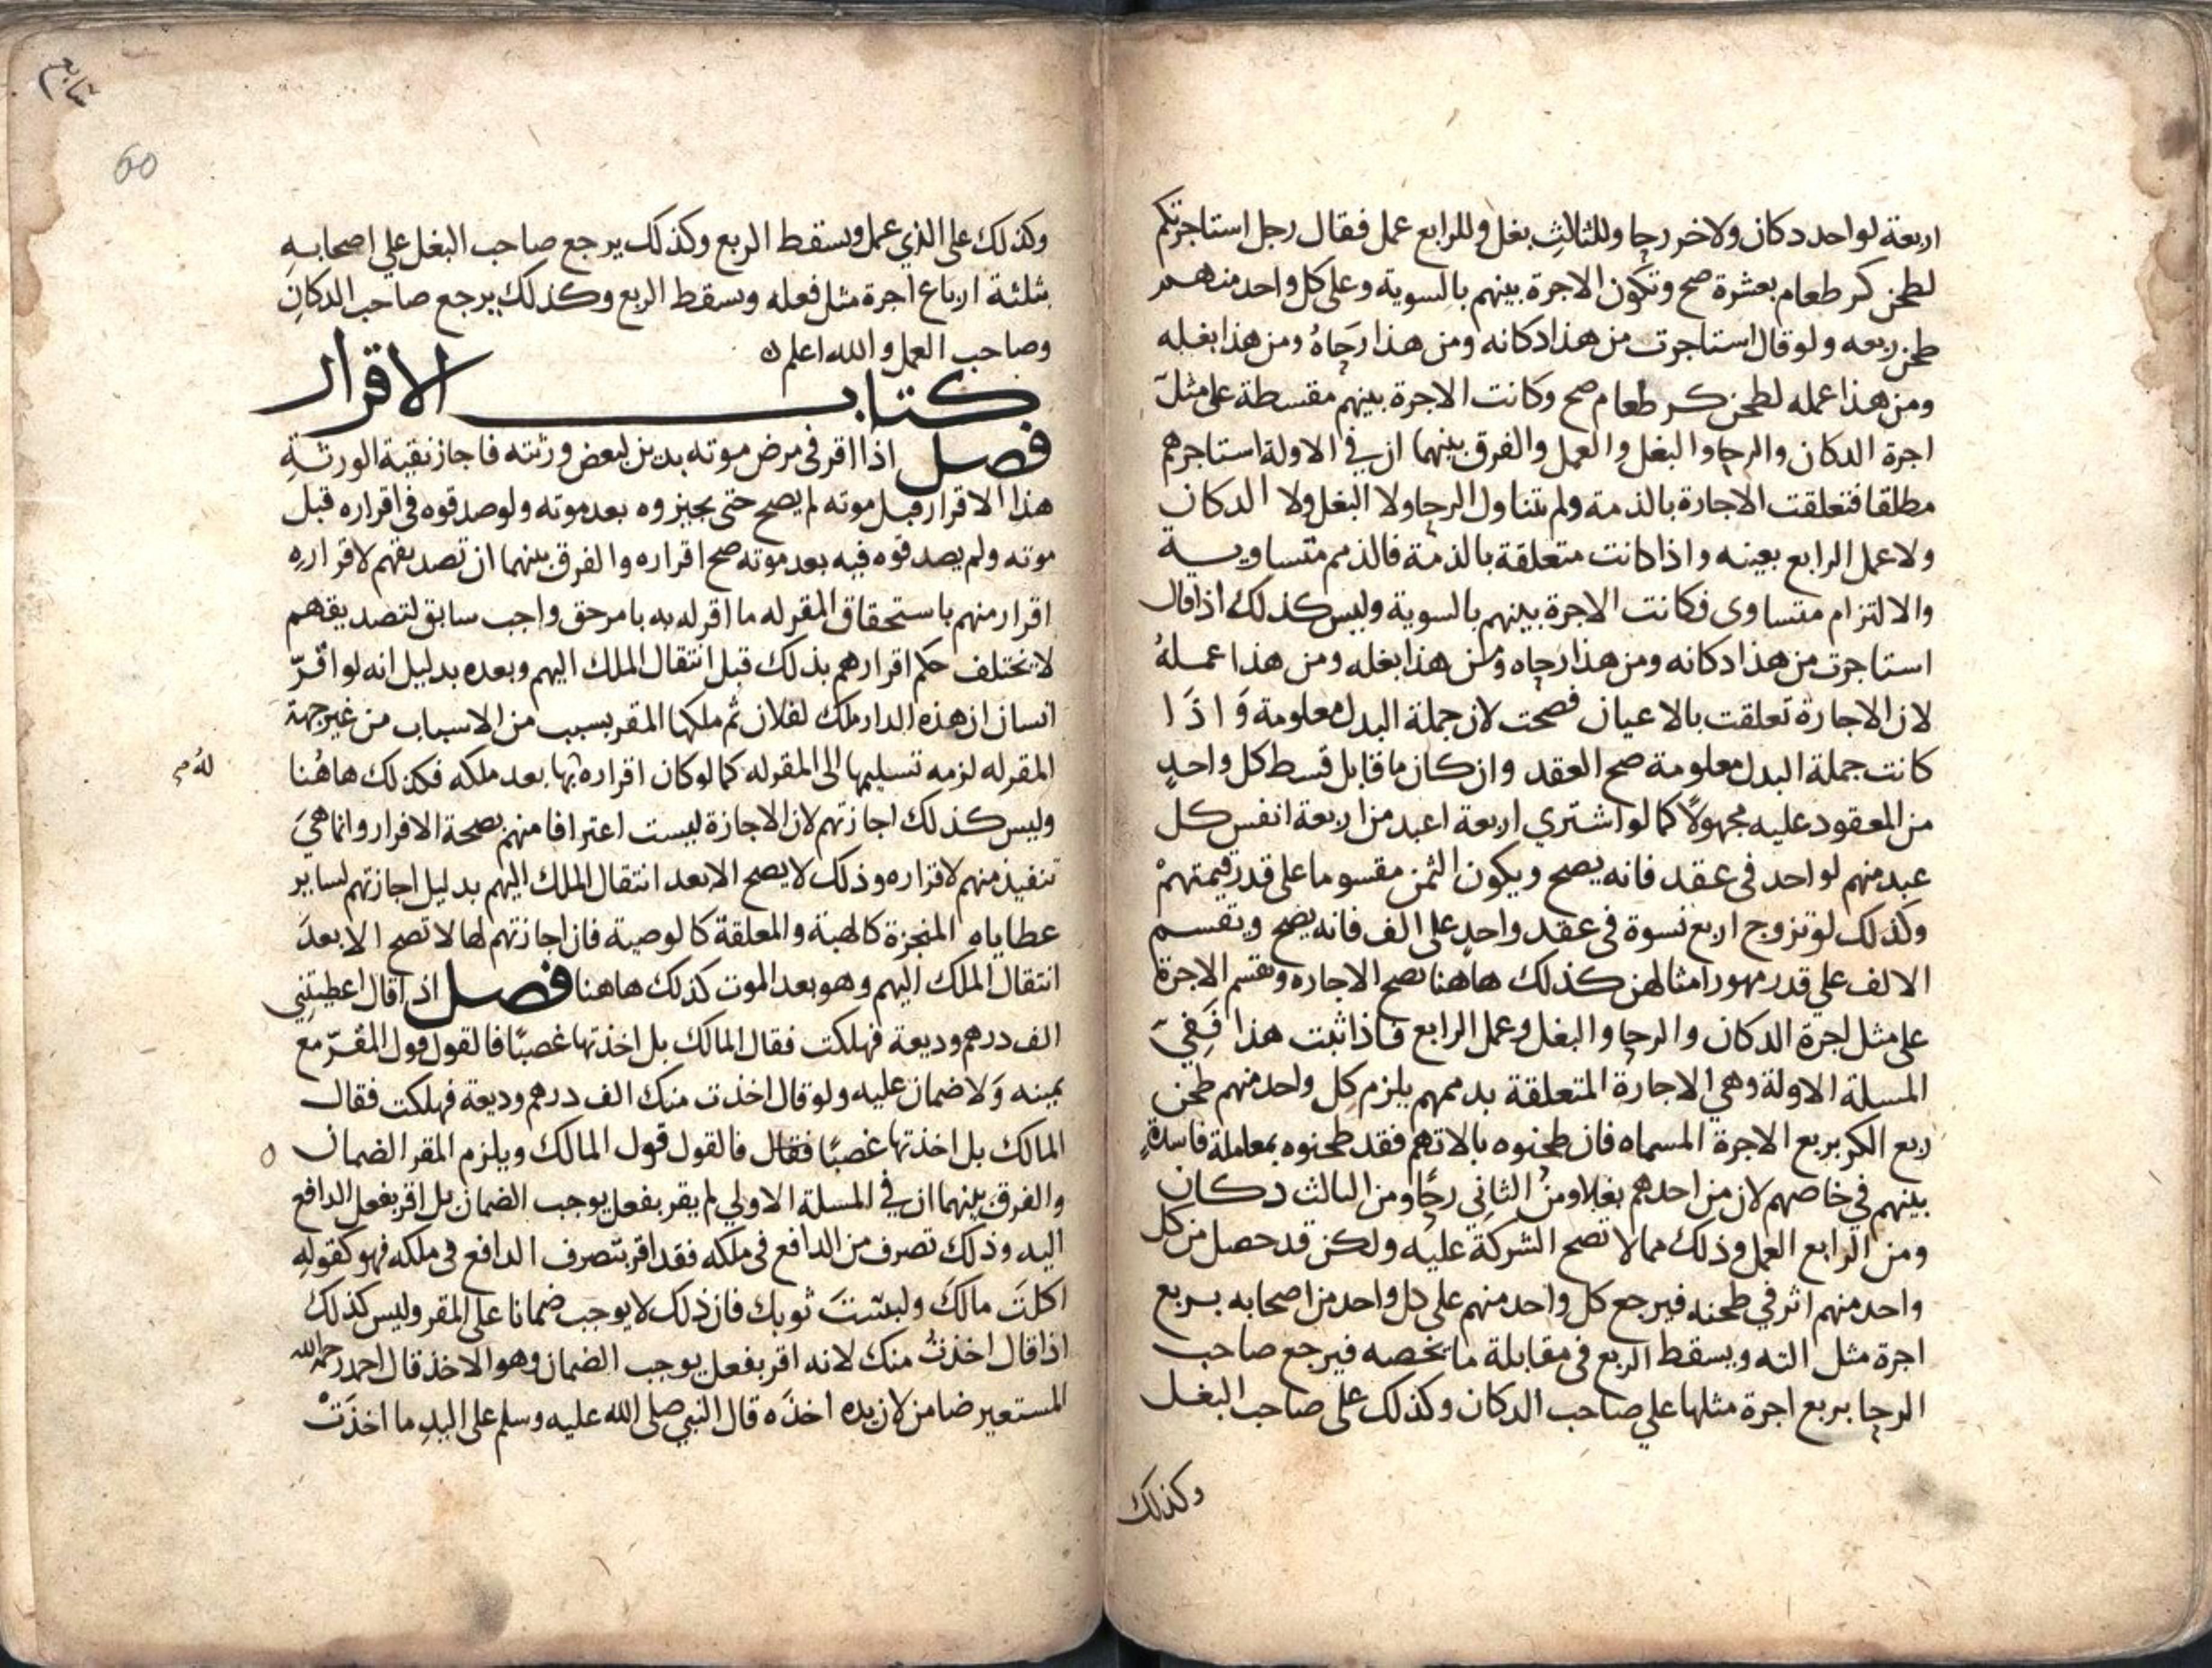 اربعة لواحد دكان ولاخر رحا وللثالث بغل وللرابع عمل فقال رجل استاجرتكم
لطحن كر طعام بعشرة صح وتكون الاجرة بينهم بالسوية وعلى كل واحد منهم
طحن ربعه ولو قال استاجرت من هذا دكانه ومن هذا رحاه ومن هذا بغله
ومن هذا عمله لطحن كر طعام صح وكانت الاجرة بينهم مقسطة على مثل
اجرة الدكان والرحا والبغل والعمل والفرق بينهما ان في الاولة استاجرهم
مطلقا فتعلقت الاجارة بالذمة ولم تتناول الرحا ولا البغل ولا الدكان
ولا عمل الرابع بعينه واذا كانت متعلقة بالذمة فالذمم متساوية
والالتزام متساوى فكانت الاجرة بينهم بالسوية وليس كذلك اذا قال
استاجرت من هذا دكانه ومن هذا رحاه ومن هذا بغله ومن هذا عمله
لان الاجارة تعلقت بالاعيان فصحت لان جملة البدل معلومة وَاذَا
كانت جملة البدل معلومة صح العقد وان كان ما قابل قسط كل واحدٍ
من المعقود عليه مجهولاً كما لو اشتري اربعة اعبد من اربعة انفس كل
عبد منهم لواحد في عقد فانه يصح ويكون الثمن مقسوما على قدر قيمتهمْ
وكذلك لو تزوج اربع نسوة في عقد واحدٍ على الف فانه يصح وتقسم
الالف علي قدر مهور امثالهن كذلك هاهنا تصح الاجاره وتقسم الاجرة
على مثل اجرة الدكان والرحا والبغل وعمل الرابع فاذا ثبت هذا فَفِيَ
المسلة الاولة وهي الاجارة المتعلقة بذممهم يلزم كل واحد منهم طحن
ربع الكر بربع الاجرة المسماه فان طحنوه بالاتهم فقد طحنوه بمعاملة فاسدةٍ
بينهم في خاصهم لان من احدهم بغلا ومن الثاني رحًا ومن الثالث دكان
ومن الرابع العمل وذلك مما لا تصح الشركة عليه ولكن قد حصل من كل
واحد منهم اثر في طحنه فيرجع كل واحد منهم على كل واحد من اصحابه بربع
اجرة مثل الته ويسقط الربع في مقابلة ما يخصه فيرجع صاحب
الرحا بربع اجرة مثلها علي صاحب الدكان وكذلك على صاحب البغل
وكذلك
60
وكذلك على الذي عمل ويسقط الربع وكذلك يرجع صاحب البغل علي اصحابهِ
بثلثة ارباع اجرة مثل فعله ويسقط الربع وكذلك يرجع صاحب الدكانِ
وصاحب العمل والله اعلم
كتاب الاقرار
فصل اذا اقر في مرض موته بدين لبعض ورثته فاجاز بقية الورثةِ
هذا الاقرار قبل موته لم يصح حتى يجيزوه بعد موته ولو صدقوه في اقراره قبل
موته ولم يصدقوه فيه بعد موته صح اقراره والفرق بينهما ان تصديقهم لاقرارهِ
اقرار منهم باستحقاق المقر له ما اقر له به بامر حق واجب سابق لتصديقهم
لا يختلف حكم اقرارهم بذلك قبل انتقال الملك اليهم وبعده بدليل انه لو اقرّ
انسان ان هذه الدار ملك لفلان ثم ملكها المقر بسبب من الاسباب من غير جهة
المقر له لزمه تسليمها الى المقر له كما لو كان اقراره بها بعد ملكه فكذلك هاهُنا
له صح
وليس كذلك اجازتهم لان الاجازة ليست اعترافا منهم بصحة الاقرار وانما هيَ
تنفيذ منهم لاقراره وذلك لا يصح الا بعد انتقال الملك اليهم بدليل اجازتهم لساير
عطاياه المنجزة كالهبة والمعلقة كالوصية فان اجازتهم لها لا تصح الا بعدَ
انتقال الملك اليهم وهو بعد الموت كذلك هاهنا فصل اذا قال اعطيتني
الف درهم وديعة فهلكت فقال المالك بل اخذتها غصبًا فالقول قول المقرّ مع
يمينه وَلا ضمان عليه ولو قال اخذت منك الف درهم وديعة فهلكت فقال
المالك بل اخذتها غصبًا فقال فالقول قول المالك ويلزم المقر الضمان
والفرق بينهما ان في المسلة الاولي لم يقر بفعل يوجب الضمان بل اقر بفعل الدافع
اليه وذلك تصرف من الدافع في ملكه فقد اقر بتصرف الدافع في ملكه فهو كقولهِ
اكلتَ مالكَ ولبستَ ثوبك فان ذلك لا يوجب ضمانا على المقر وليس كذلك
اذا قال اخذتُ منك لانه اقر بفعل يوجب الضمان وهو الاخذ قال احمد رحمه الله
المستعير ضامن لان يده اخذَه قال النبي صلى الله عليه وسلم على اليدِ ما اخذَتْ